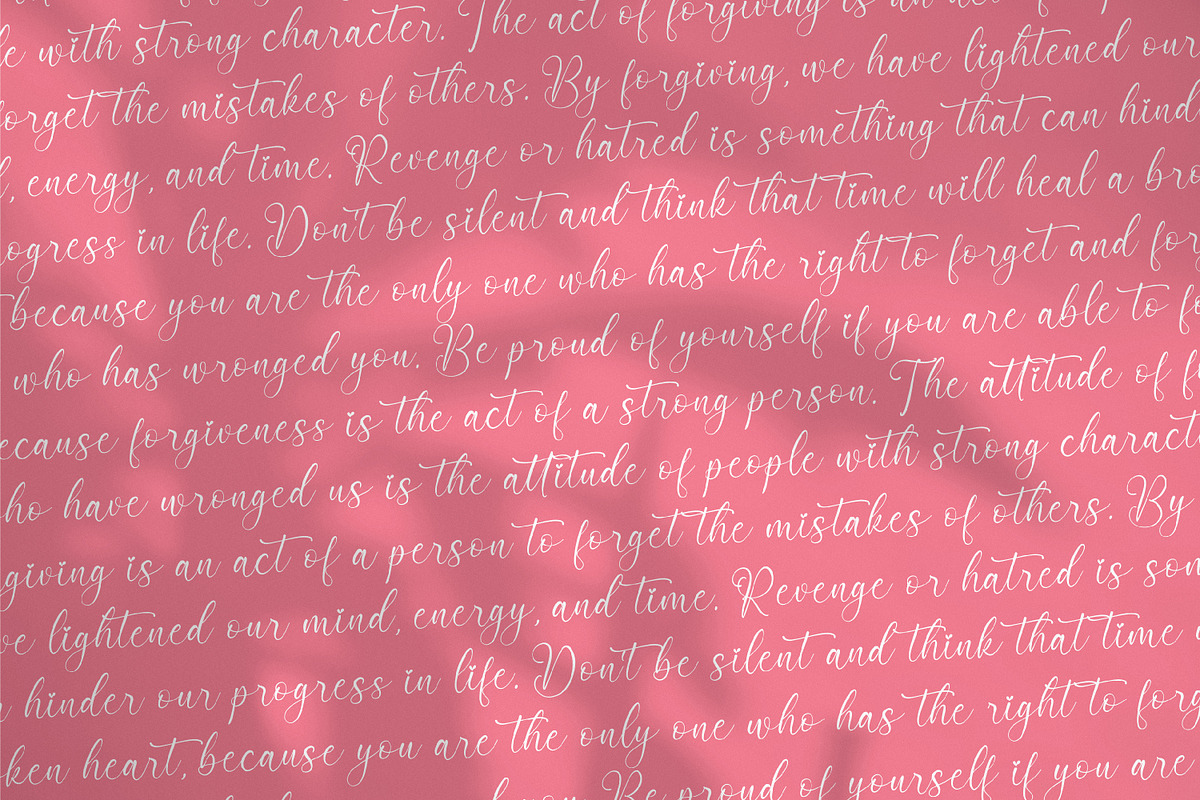 with strong character. The act of forgiving is an
forget the mistakes of others. By forgiving, we have lightened our
energy, and time. Revenge or hatred is something that can hind
ogress in life. Don't be silent and think that time will heal a bro
because you are the only one who has the right to forget and for
who has wronged you. Be proud of yourself if you are able to fo
ecause forgiveness is the act of a strong person. The attitude of f
ho have wronged us is the attitude of people with strong charact
giving is an act of a person to forget the mistakes of others. By
ve lightened our mind, energy, and time. Revenge or hatred is som
hinder our progress in life. Don't be silent and think that time
ken heart, because you are the only one who has the right to forg
Be proud of yourself if you are